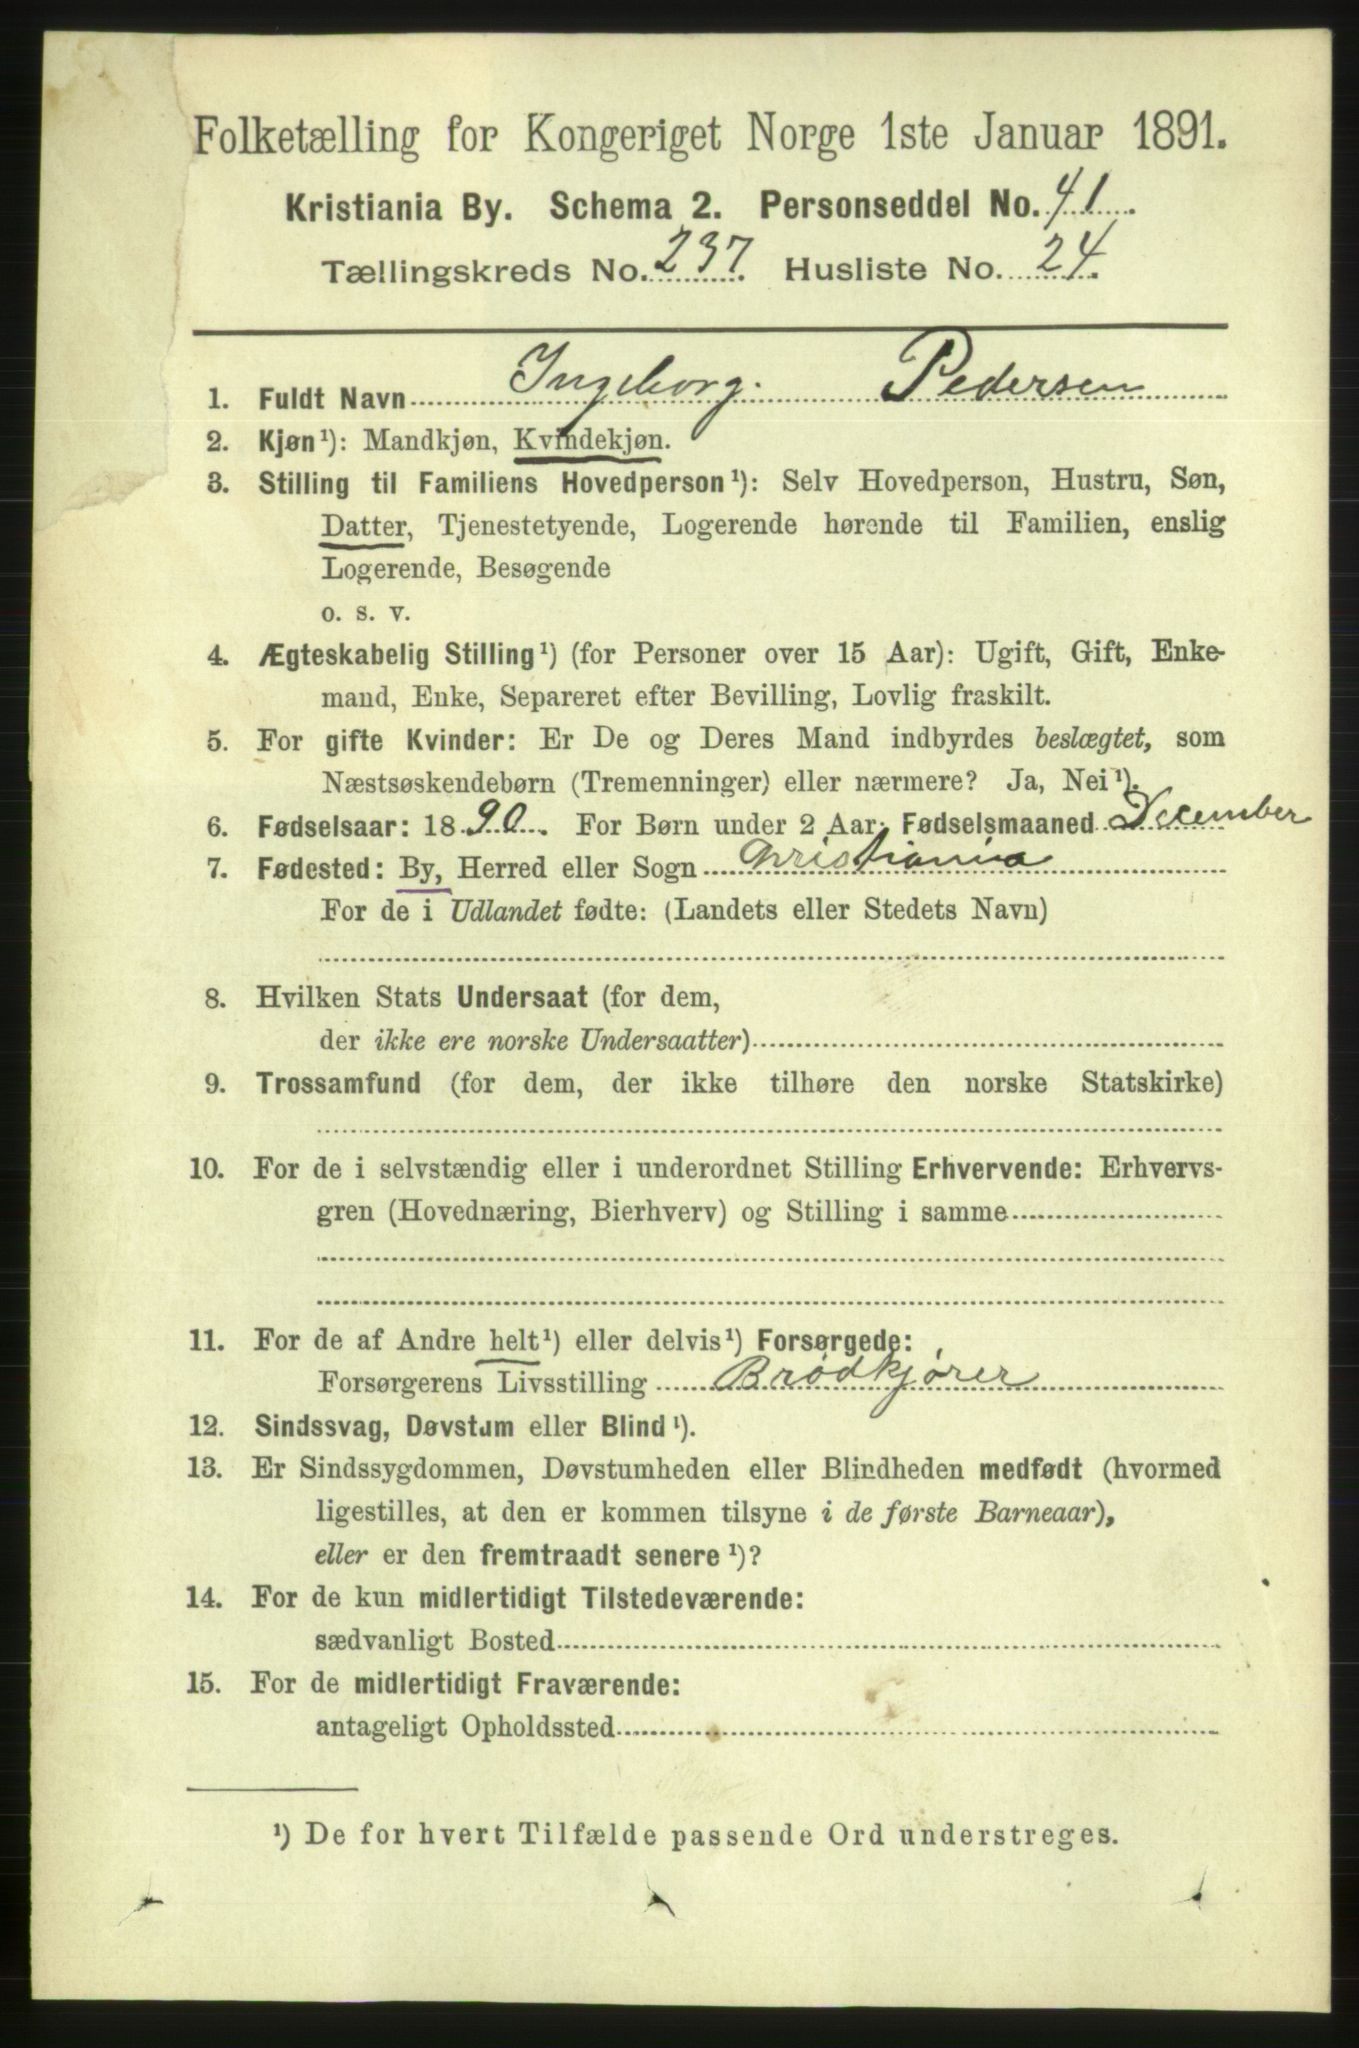 Folketælling for Kongeriget Norge 1ste Januar 1891.
Kristiania By. Schema 2. Personseddel No. 41.
Tællingskreds No. 237. Husliste No. 24.
1. Fuldt Navn Ingeborg. Pedersen
2. Kjøn¹): Mandkjøn, Kvindekjøn.
3. Stilling til Familiens Hovedperson¹): Selv Hovedperson, Hustru, Søn,
Datter, Tjenestetyende, Logerende hørende til Familien, enslig
Logerende, Besøgende
o. s. v.
4. Ægteskabelig Stilling¹) (for Personer over 15 Aar): Ugift, Gift, Enke-
mand, Enke, Separeret efter Bevilling, Lovlig fraskilt.
5. For gifte Kvinder: Er De og Deres Mand indbyrdes beslægtet, som
Næstsøskendebørn (Tremenninger) eller nærmere? Ja, Nei¹).
6. Fødselsaar: 1890. For Børn under 2 Aar: Fødselsmaaned December
7. Fødested: By, Herred eller Sogn Christiania
For de i Udlandet fødte: (Landets eller Stedets Navn)
8. Hvilken Stats Undersaat (for dem,
der ikke ere norske Undersaatter)
9. Trossamfund (for dem, der ikke tilhøre den norske Statskirke)
10. For de i selvstændig eller i underordnet Stilling Erhvervende: Erhvervs-
gren (Hovednæring, Bierhverv) og Stilling i samme
11. For de af Andre helt¹) eller delvis¹) Forsørgede:
Forsørgerens Livsstilling Brødkjører
12. Sindssvag, Døvstum eller Blind¹).
13. Er Sindssygdommen, Døvstumheden eller Blindheden medfødt (hvormed
ligestilles, at den er kommen tilsyne i de første Barneaar),
eller er den fremtraadt senere¹)?
14. For de kun midlertidigt Tilstedeværende:
sædvanligt Bosted
15. For de midlertidigt Fraværende:
antageligt Opholdssted
¹) De for hvert Tilfælde passende Ord understreges.